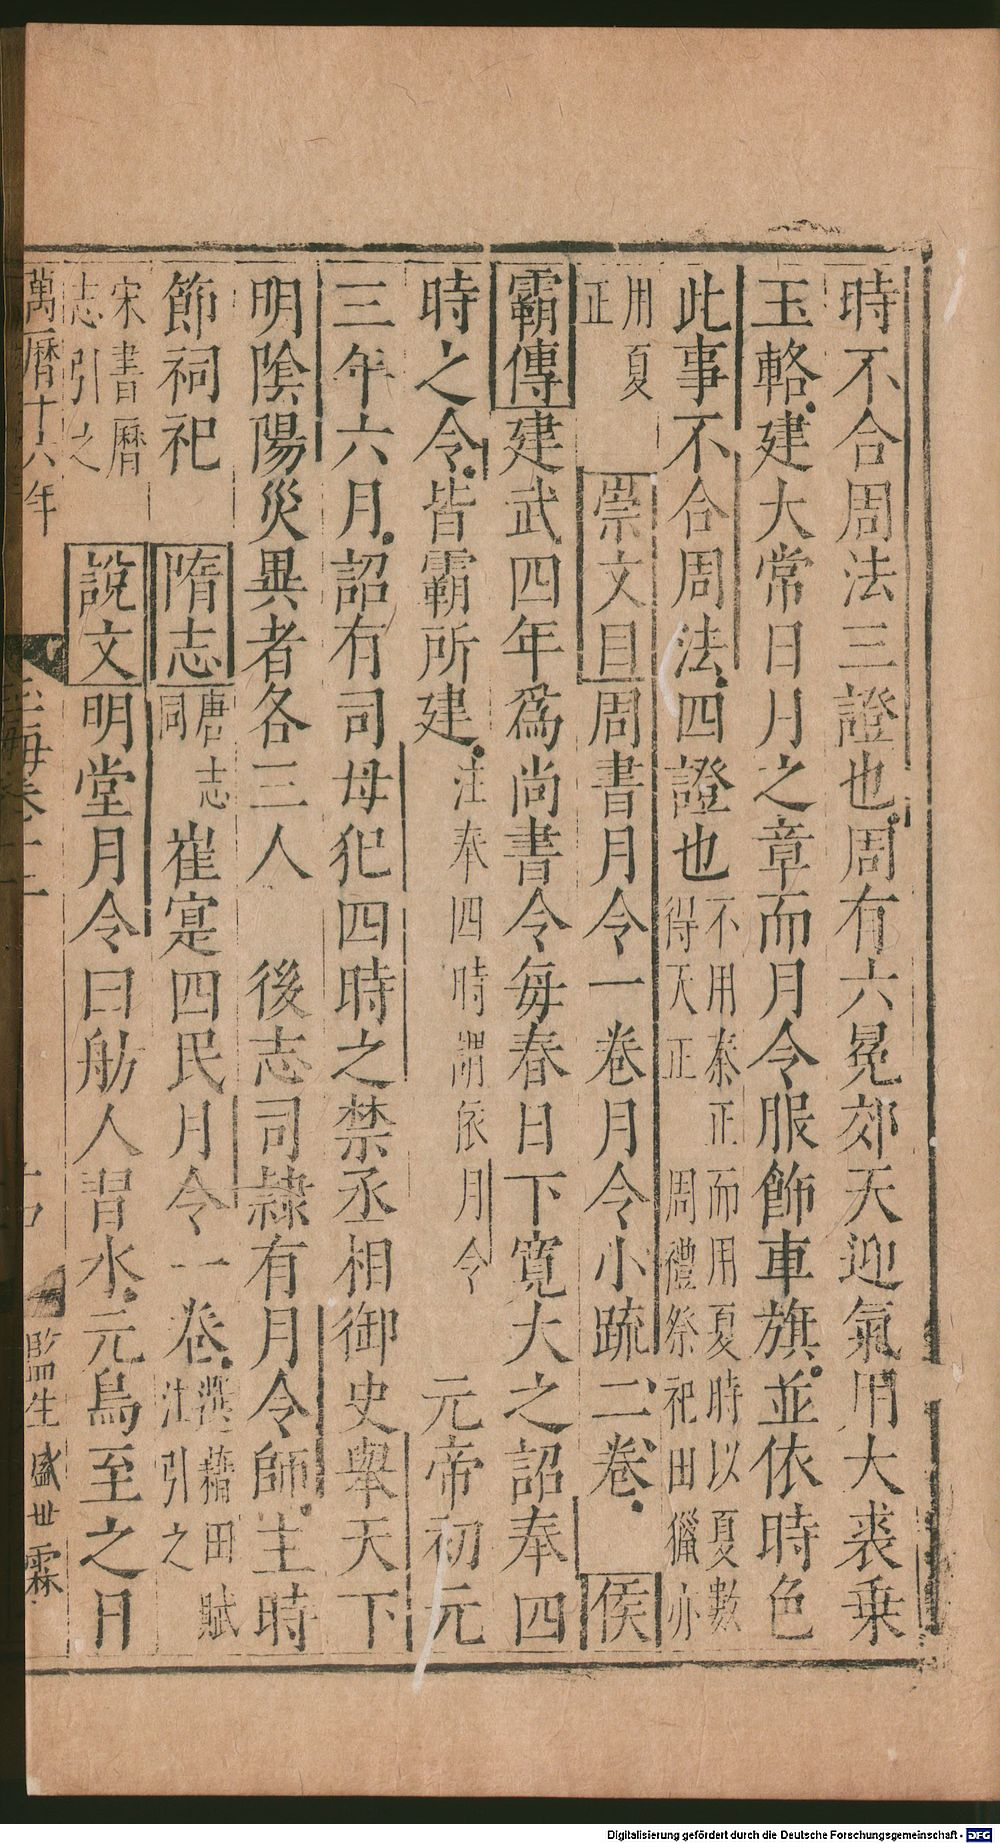 時不合周法三證也周有六冕郊天迎氣用大裘乗
玉輅建大常日月之章而月令服飾車旗並依時色
此事不合周法四證也不用秦正而用夏時以夏數得天正 周禮祭祀田獵亦
用夏正 崇文目周書月令一卷月令小疏二卷 侯
霸傳建武四年爲尚書令每春日下寛大之詔奉四
時之令皆霸所建注奉四時謂依月令 元帝初元
三年六月詔有司毋犯四時之禁丞相御史舉天下
明陰陽災異者各三人 後志司隸有月令師主時
節祠祀 隋志唐志同崔寔四民月令一卷選藉田賦注引之
宋書曆志引之 說文明堂月令曰舫人習水元鳥至之日
萬曆十六年 玉海卷十二 監生盛世霖
Digitalisierung gefördert durch die Deutsche Forschungsgemeinschaft - DFG